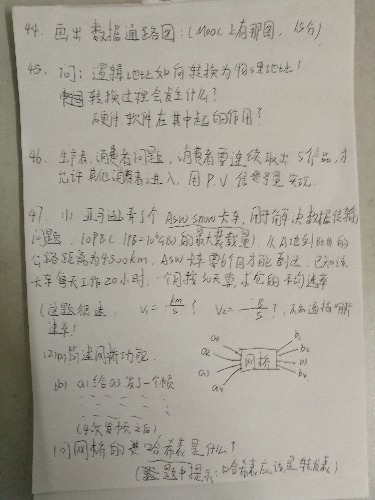 44. 画出数据通路图:(MOOC上有那图, 15分)
45. 问: 逻辑地址如何转换为物理地址?
转换过程会发生什么?
硬件、软件在其中起的作用?
46. 生产者、消费者问题, 消费者要连续取出5个产品, 才
允许其他消费者进入, 用P、V信号量实现.
47. (1). 亚马逊弄了个 ASW snow 卡车, 用于解决数据传输
问题. 10PB( 1PB=10⁶GB)的最大装载量) 从A地到B地的
公路距离为4500km, ASW卡车要6个月才能到达. 已知该
卡车每天工作20小时, 一个月按30天算, 求它的平均速率
(这题很迷, V₁= km/s ? V₂= B/s ?, 不知道指哪个
速率)
(2) (a) 简述网桥功能.
(b) a₁给a₃发了一个帧
(4次发帧之后)
问网桥的哈希表是什么?
(题中提示:哈希表应该是转发表)
a₁
a₂
a₃
a₄
网桥
b₁
b₂
b₃
b₄